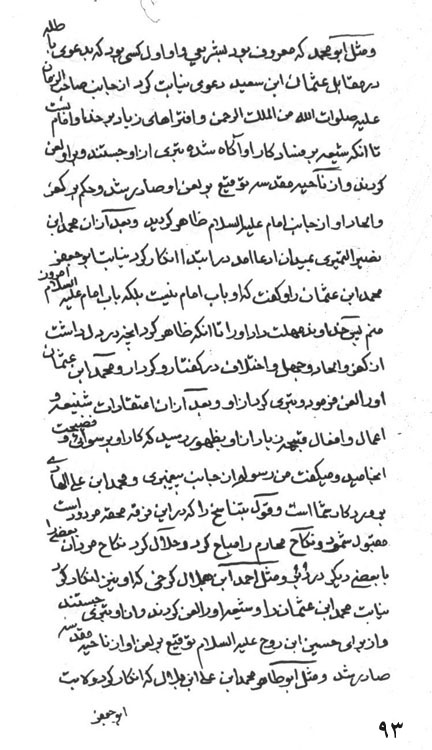 و مثل ابو محمد که معروف بود بشریعی و او اول کسی بود که بدعوی باطله
در مقابل عثمان ابن سعید دعوی نیابت کرد از جانب صاحب الزمان
علیه صلوات الله من الملک الرحمن و افتراهای زیاد بر خدا و امام بست
تا آنکه شیعه بر فساد کار او آگاه شده تبری از او جستند و بر او لعن
کردند و از ناحیه مقدسه توقیع بر لعن او صادر شد و حکم بر کفر
و الحاد او از جانب امام علیه السلام ظاهر گردید و بعد از آن محمد ابن
نصیر النمیری بمیدان ادعا آمد در ابتدا انکار کرد نیابت ابو جعفر
محمد ابن عثمان را و گفت که او باب امام نیست بلکه باب امام علیه السلام امروز
منم پس خداوند مهلت داد او را تا آنکه ظاهر کرد آنچه در دل داشت
از کفر و الحاد و جهل و اختلاف در گفتار و کردار و محمد ابن عثمان
او را لعن فرمود و تبری کرد از او و بعد از آن اعتقادات شنیعه و
اعمال و افعال قبیحه زیاد از او بظهور رسید که کار او برسوائی و فضیحت
انجامید و میگفت من رسولم از جانب پیغمبری و محمد ابن علی الهادی
پروردگار شما است و قول بتناسخ را که در این فرقه محقه مردود است
مقبول شمرد و نکاح محارم را مباح کرد و حلال کرد نکاح مردان بعضی را
با بعضی دیگر در دبر و مثل احمد ابن هلال کرخی که او نیز انکار کرد
نیابت محمد ابن عثمان را و شیعه او را لعن کردند و از او تبری جستند
و از برای حسین ابن روح علیه السلام توقیع بر لعن او از ناحیه مقدسه
صادر شد و مثل ابو طاهر محمد ابن علی ابن بلال که انکار کرد وکالت
ابو جعفر
۹۳